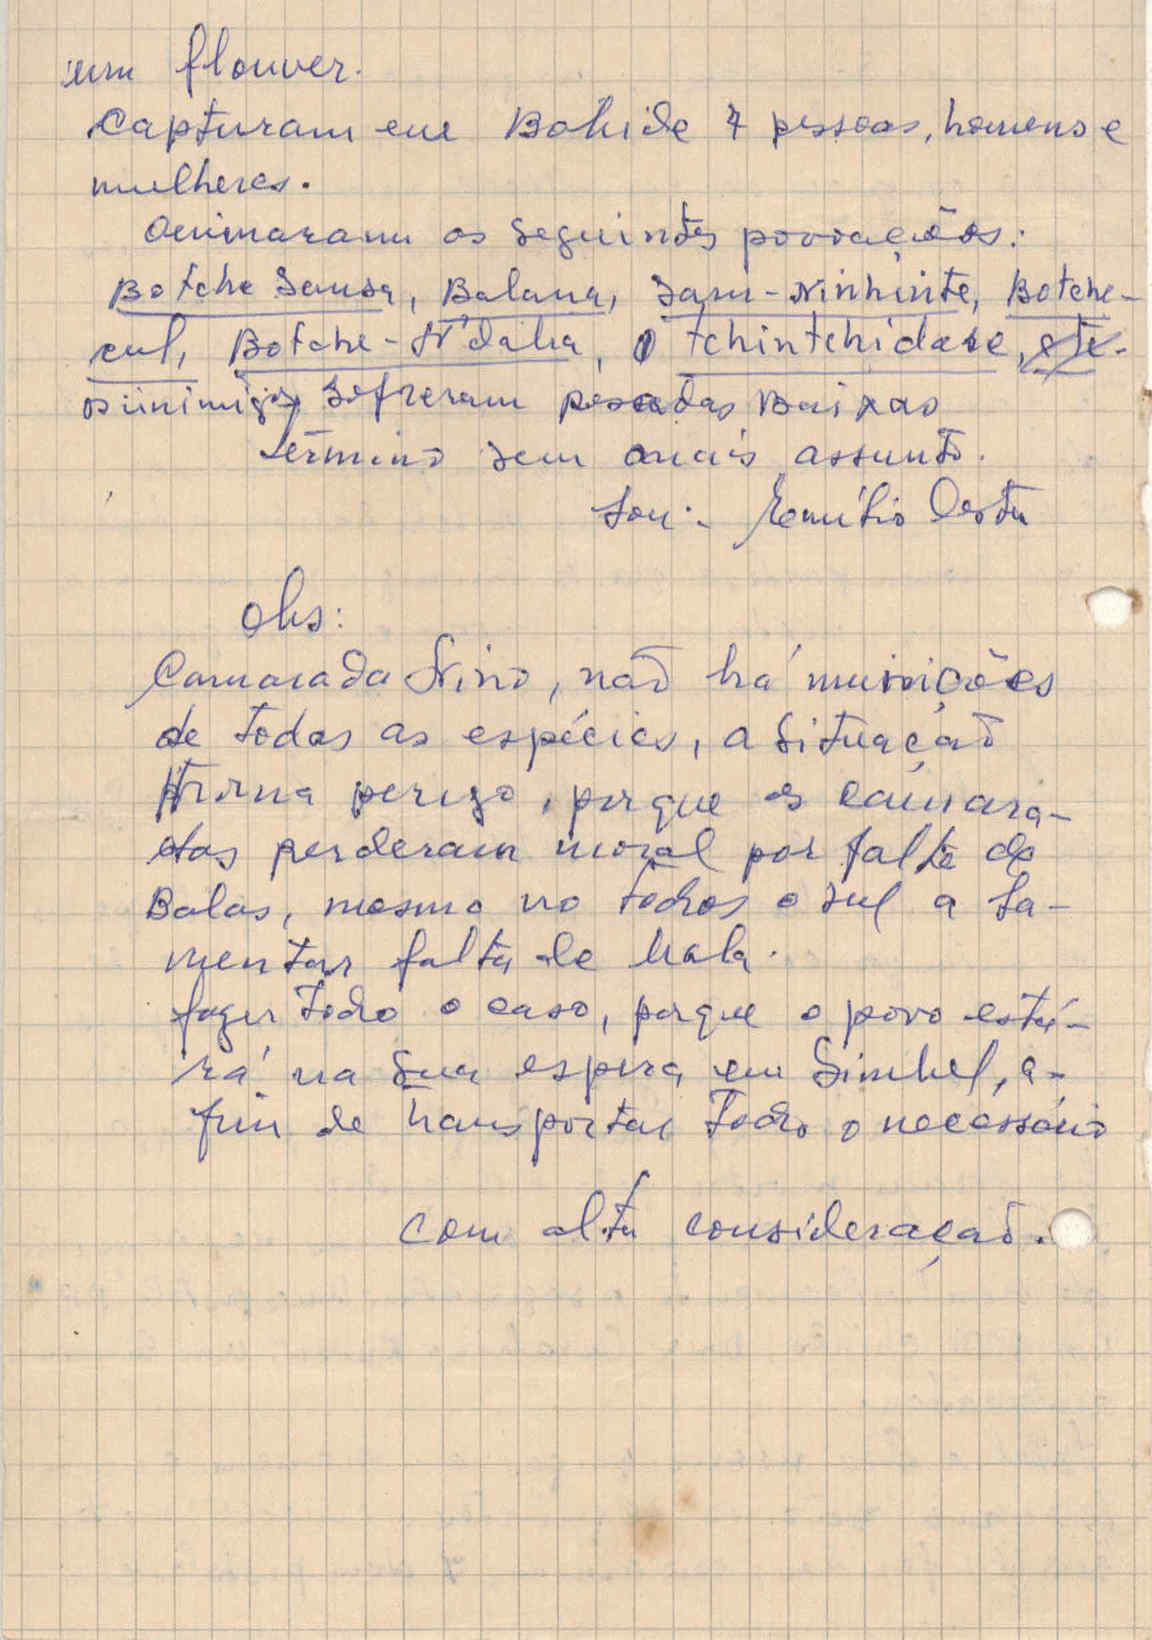 um flouver.
Capturam em Bohide 7 pessoas, homens e
mulheres.
Queimaram as seguintes povoações:
Botche Sansa, Balana, Sam-Ninhinte, Botche-
cul, Botche-N'dalha, Tchintchidare,
os inimigos sofreram pesadas Baixas
Termino sem mais assunto.
Sou:- Emílio Costa
Obs:
Camarada Nino, não há munições
de todas as espécies, a situação
torna perigo, porque os camara-
das perderam moral por falta de
Balas, mesmo no todos o sul a la-
mentar falta de bala.
fazer todo o caso, porque o povo esta-
rá na sua espera em Simbel, a-
fim de transportar todo o necessário
com alta consideração.